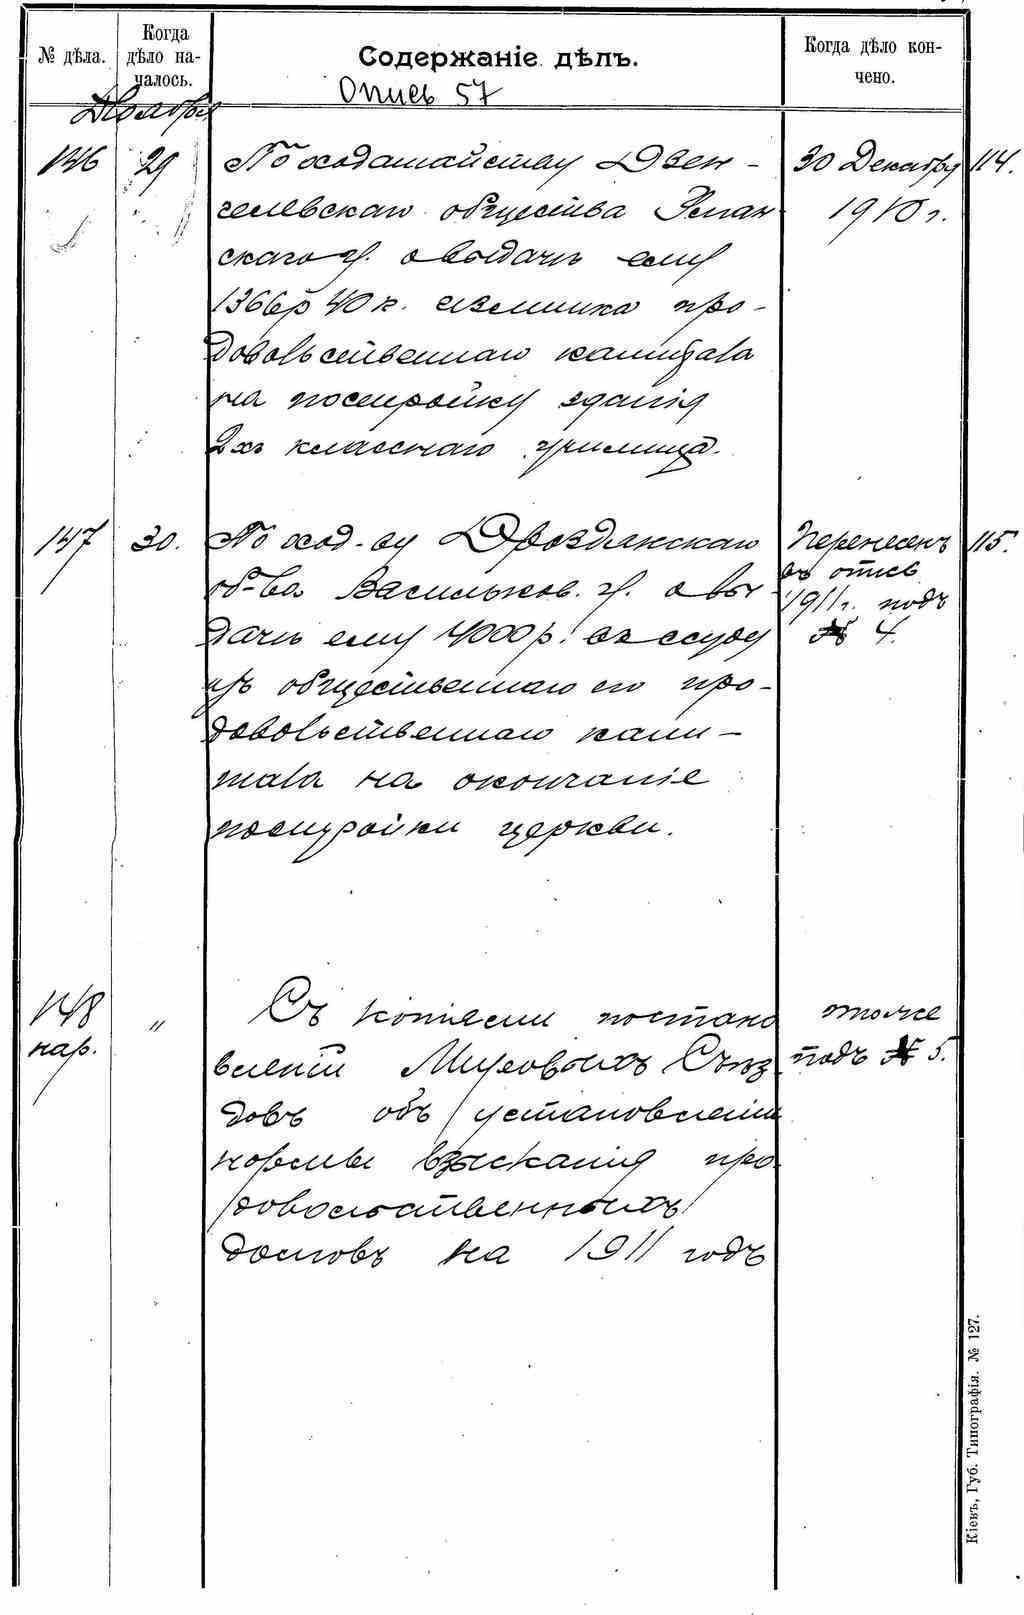 № дѣла.
Когда дѣло на-
чалось.
Содержаніе дѣлъ.
Когда дѣло кон-
чено.
Опись 57
Ноября
146 29 По ходатайству Дзен-
гелевскаго общества Уман-
скаго у. о выдачѣ ему
1366 р 40 к. излишка про-
довольственнаго капитала
на постройку зданія
2хъ класснаго училища.
30 Декабря
1910 г.
114.
147 30. По ход-ву Дроздянскаго
об-ва Васильков. у. о вы-
дачѣ ему 4000 р. въ ссуду
изъ общественнаго его про-
довольственнаго капи-
тала на окончаніе
постройки церкви.
Перенесенъ
въ опись
1911 г. подъ
№ 4.
115.
148 " Съ копіями постано
нар.
вленій Мировыхъ Съѣз
довъ объ установленіи
нормы взысканія про-
довольственныхъ
долговъ на 1911 годъ
тоже
подъ № 5.
Кіевъ, Губ. Типографія. № 127.